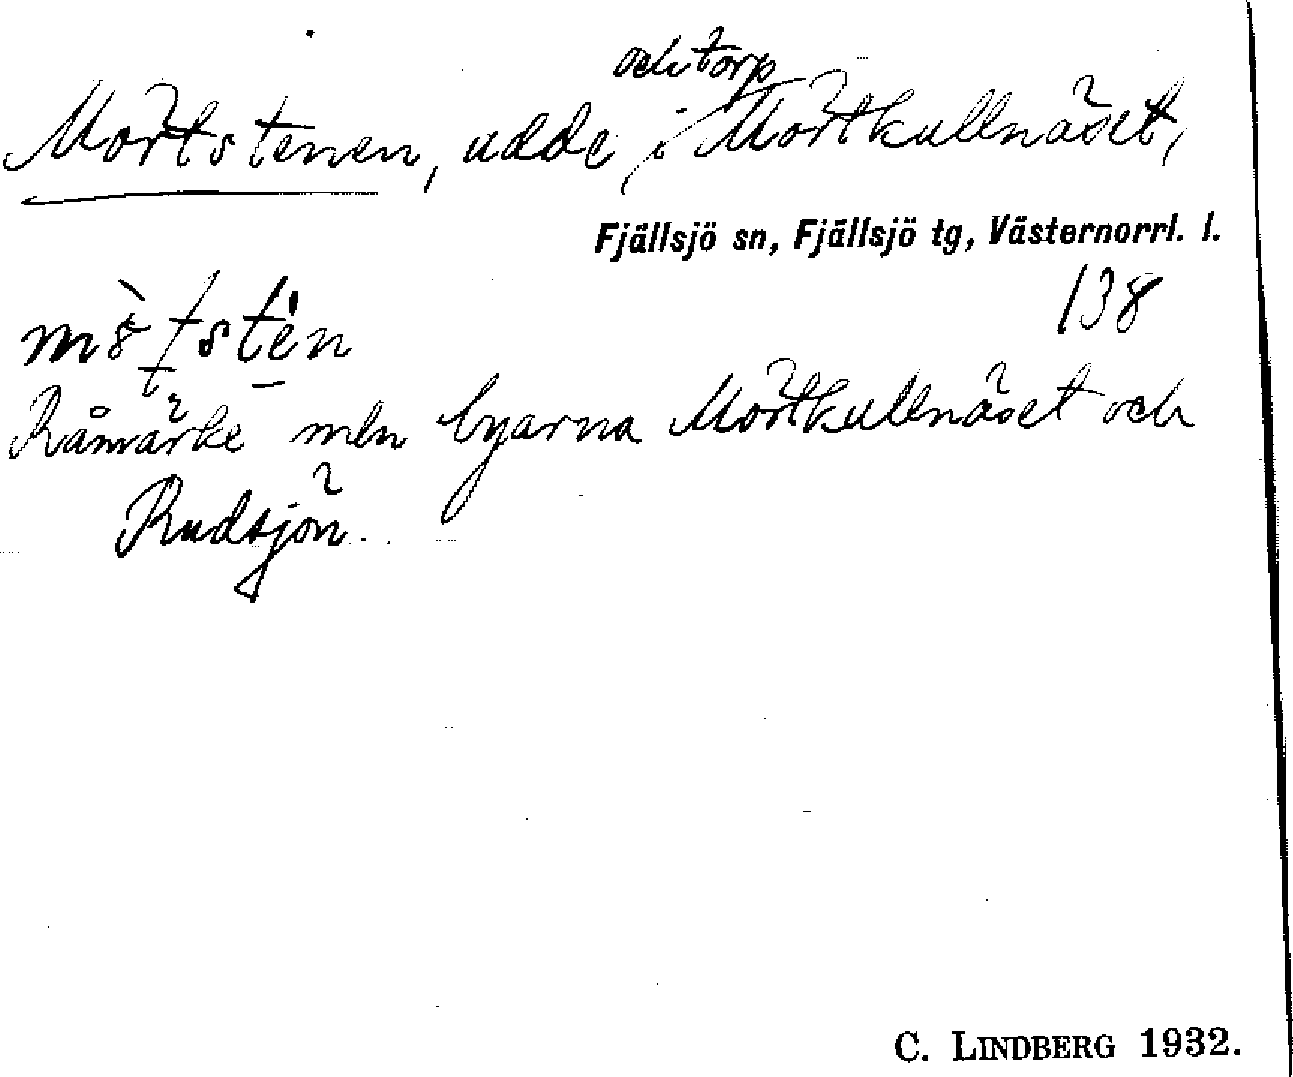 och torp
Mörtstenen, udde, i Mörtkullnäset,
Fjällsjö sn, Fjällsjö tg, Västernorrl. l.
138
Råmärke mln byarna Mörtkullnäset och
Rudsjön.
C. LINDBERG 1932.